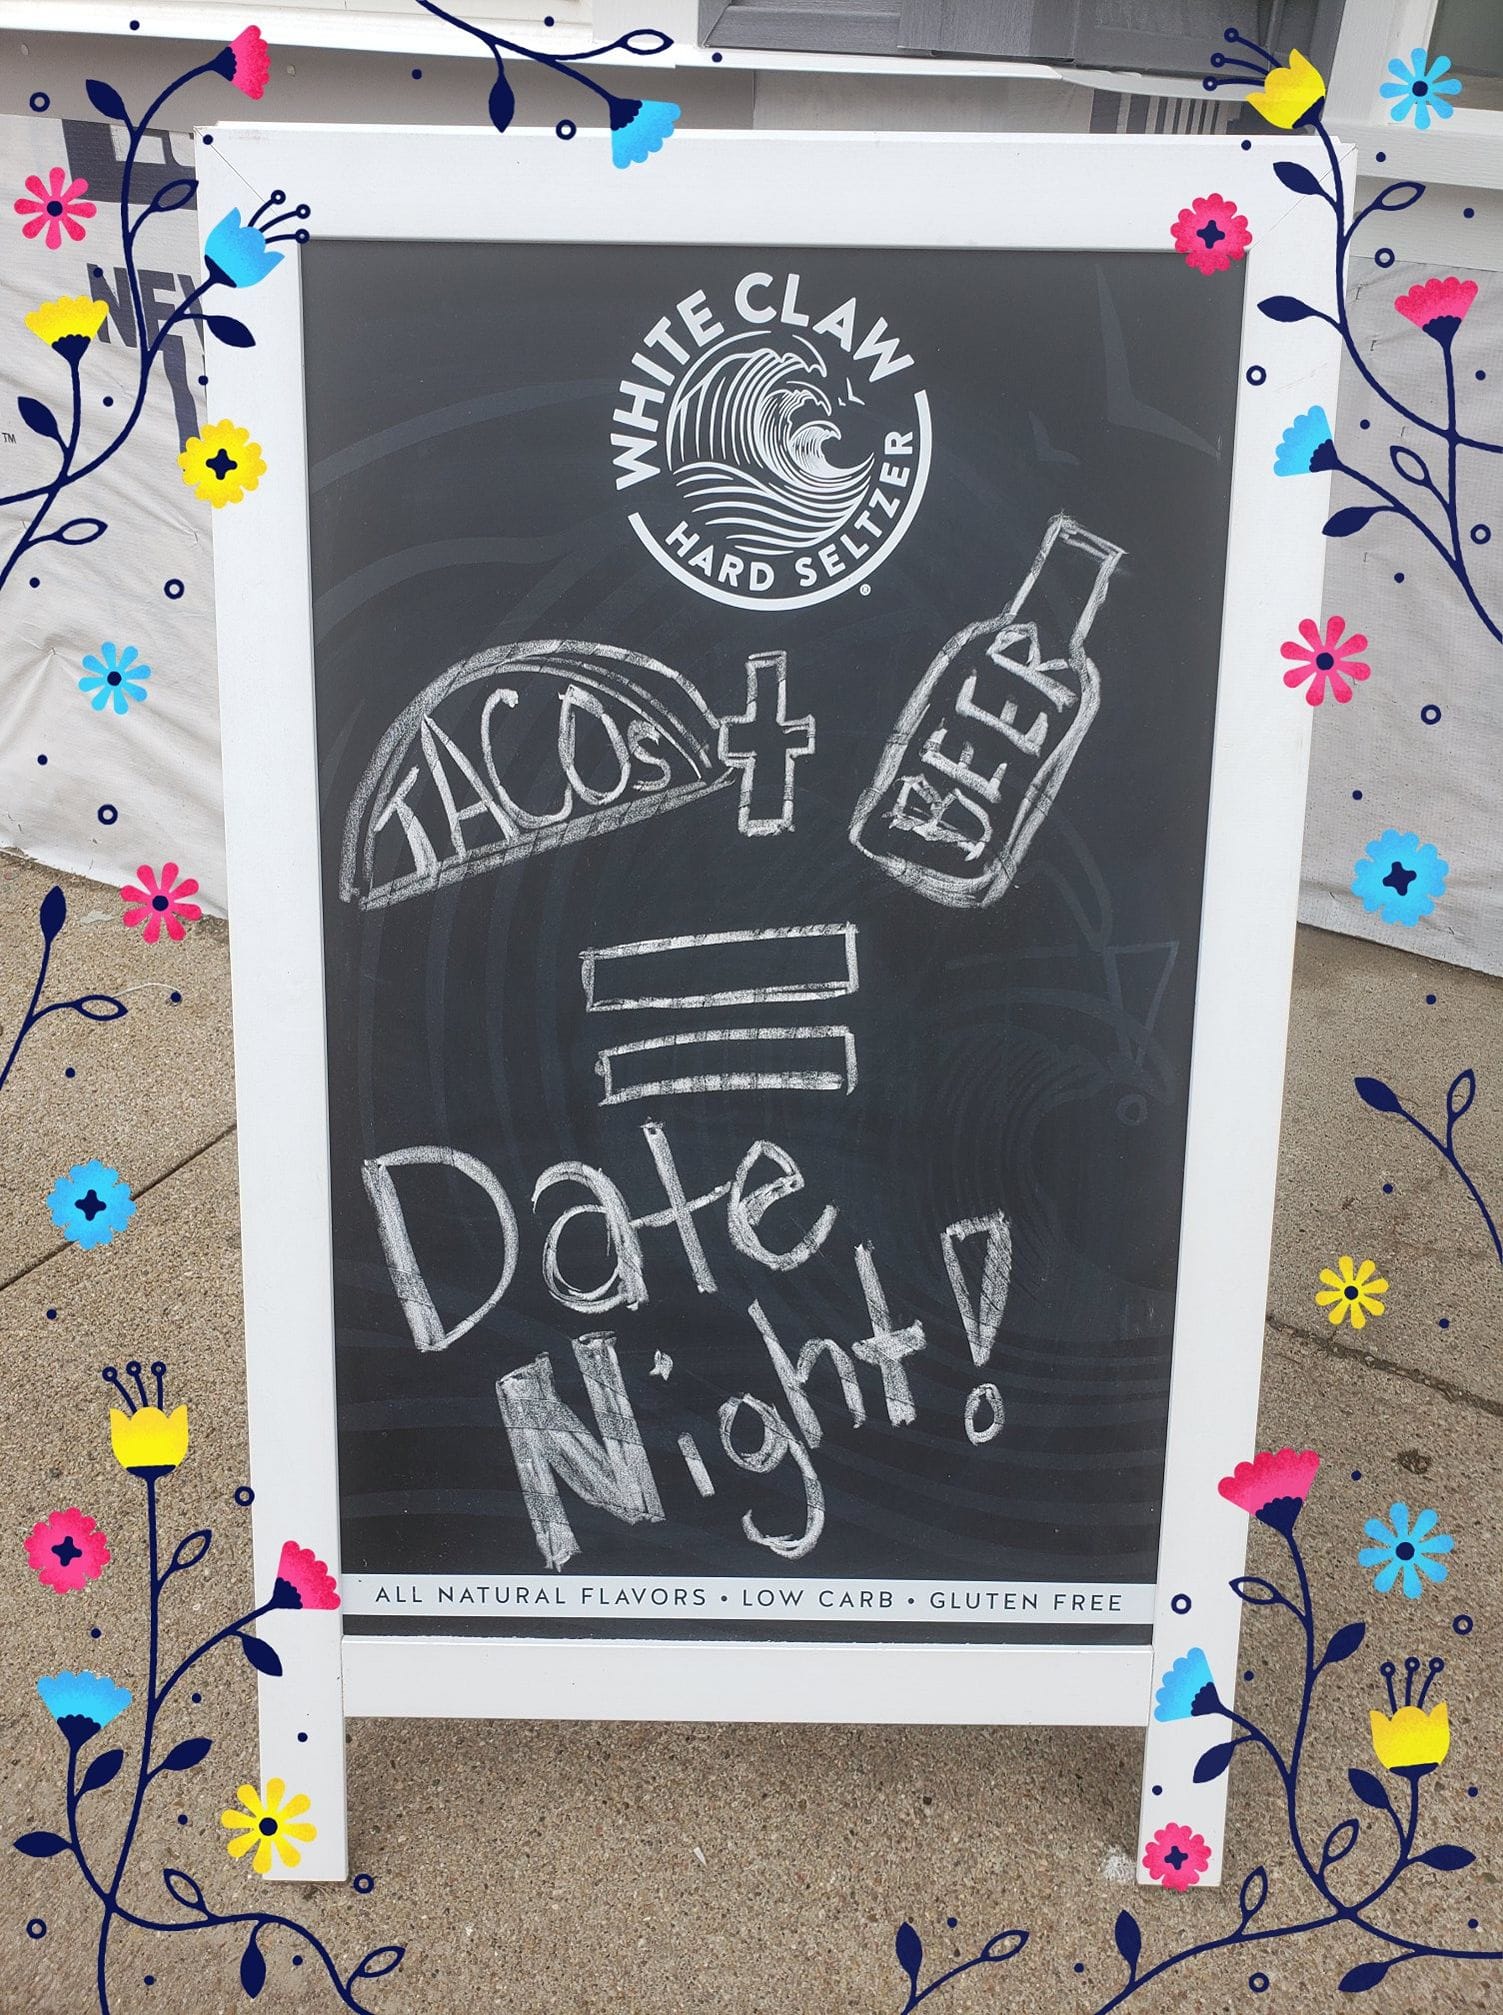 WHITE CLAW
HARD SELTZER
®
TACOs + BEER
=
Date
Night!
ALL NATURAL FLAVORS • LOW CARB • GLUTEN FREE
TM